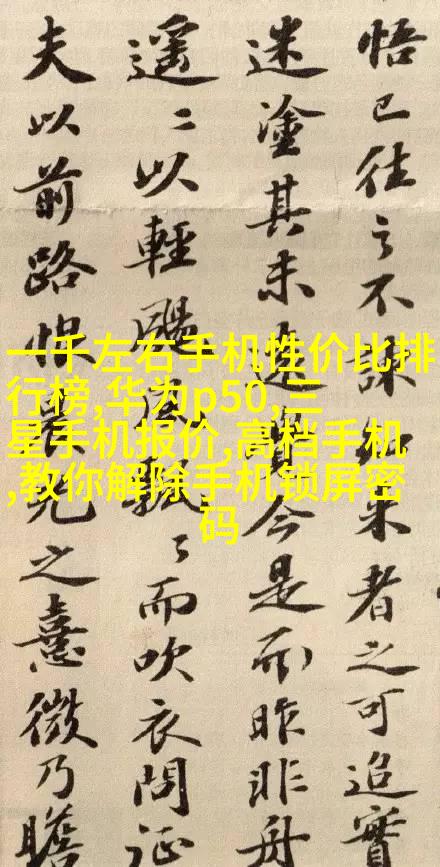 悟已往之不諫知来者之可追實
迷塗其未遠覺今是而昨非舟
遥〻以輕颺風飄〻而吹衣問征
夫以前路恨晨光之熹微乃瞻
一千左右手机性价比排
行榜,华为p50,三
星手机报价,高档手机
,教你解除手机锁屏密
码